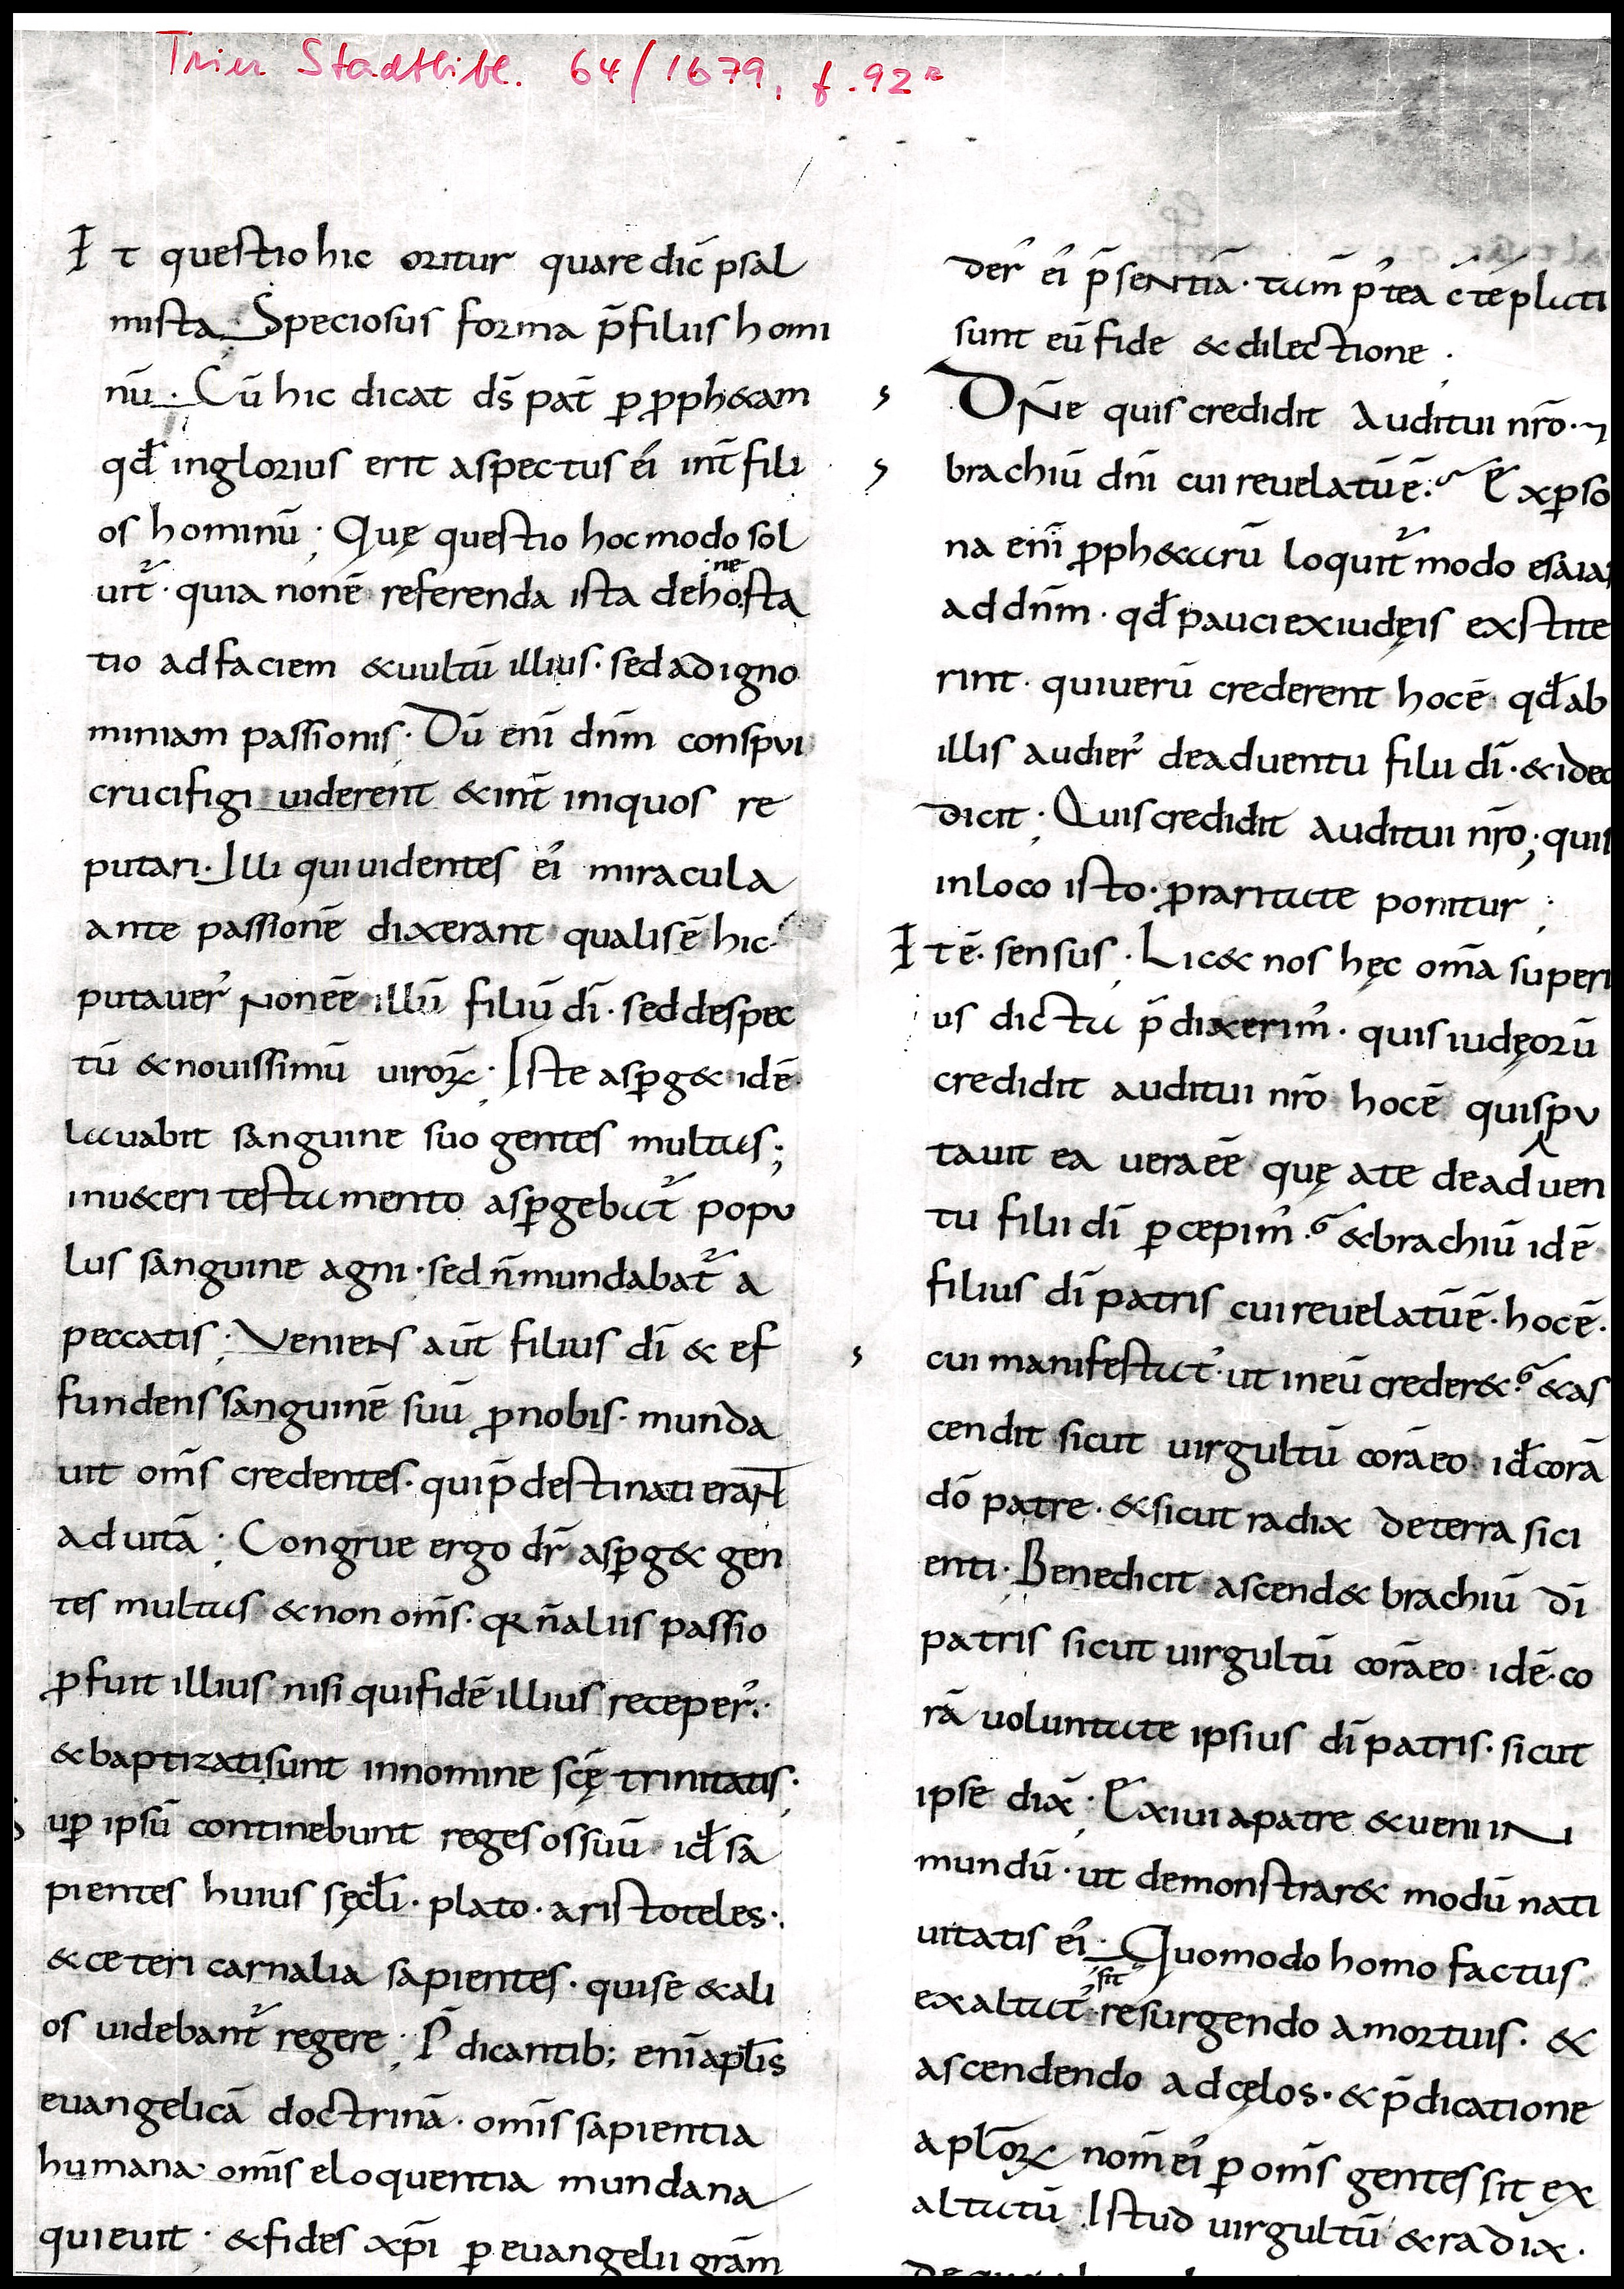 Trier Stadtbibl. 64/1679, f. 92r
It questio hic oritur quare dic̄ psal
mista Speciosus forma p̄ filiis homi
nū. Cū hic dicat ds̄ pat̄ ꝑ ꝓph&am
qđ inglorius erit aspectus ei᾽ int̄ fili
os hominū; Quę questio hoc modo sol
uit᷑· quia non ē referenda ista dehoneſta
tio ad faciem & uultū illius· sed ad igno
miniam passionis; Dū enī dn̄m conspui
crucifigi uiderent & int̄ iniquos re
putari. Illi qui uidentes ei᾽ miracula
ante passionē dixerant qualis ē hic·
putauer᾽ non eē illū filiū dī· sed despec
tū & nouissimū uiroꝝ; Iste asperg& idē·
lauabit sanguine suo gentes multas;
in u&eri testamento aspergebat᷑ popu
lus sanguine agni· sed n̄ mundabat᷑ a
peccatis; Veniens aūt filius dī & ef
fundens sanguinē suū ꝓ nobis· munda
uit om̄s credentes· qui p̄destinati erant
ad uitā; Congrue ergo dr̄ asperg& gen
tes multas & non om̄s· qr n̄ aliis passio
ꝓfuit illius nisi qui fidē illius receper᾽·
& baptizati sunt in nomine scę̄ trinitatis;
Suꝑ ipsū continebunt reges os suū· id̄ sa
pientes huius sęcłi· plato· aristoteles·
& ceteri carnalia sapientes· qui se & ali
os uidebant᷑ regere; P̄dicantib; enī apłis
euangelicā doctrinā· om̄is sapientia
humana· om̄is eloquentia mundana
quieuit· & fides xp̄i ꝑ euangelii grām
der᾽ ei᾽ p̄sentiā· tam̄ p᾽tea c̄teplati
sunt eū fide & dilectione.
Dn̄e quis credidit auditui nr̄o· ⁊
brachiū dn̄i cui reuelatū ē; Ex ꝑso
na enī ꝓph&arū loquit᷑ modo esaias
ad dn̄m· qđ pauci ex iudęis exstite
rint· qui uerū crederent hoc ē· qđ ab
illis audier᾽ de aduentu filii dī· & ideo
dicit; Quis credidit auditui nr̄o; quis
in loco isto· ꝓ raritate ponitur;
Itē· sensus; Lic& nos hęc om̄a superi
us dicta p̄dixerim᾽· quis iudęorū
credidit auditui nr̄o hoc ē quis pu
tauit ea uera eē quę a te de aduen
tu filii dī ꝑcepim᾽· & brachiū idē·
filius dī patris cui reuelatū ē· hoc ē·
cui manifestat᾽· ut in eū creder&· & as
cendit sicut uirgultū corā eo· id̄ corā
dō patre· & sicut radix de terra sici
enti; Bene dicit ascend& brachiū dī
patris sicut uirgultū corā eo· idē· co
rā uoluntate ipsius dī patris· sicut
ipse dix̄; Exiui a patre & ueni in
mundū· ut demonstrar& modū nati
uitatis ei᾽; Quomodo homo factus
exaltat᾽ sit resurgendo a mortuis· &
ascendendo ad cęlos· & p̄dicatione
apłoꝝ nom̄ ei᾽ ꝑ om̄s gentes sit ex
altatū; Istud uirgultū & radix·